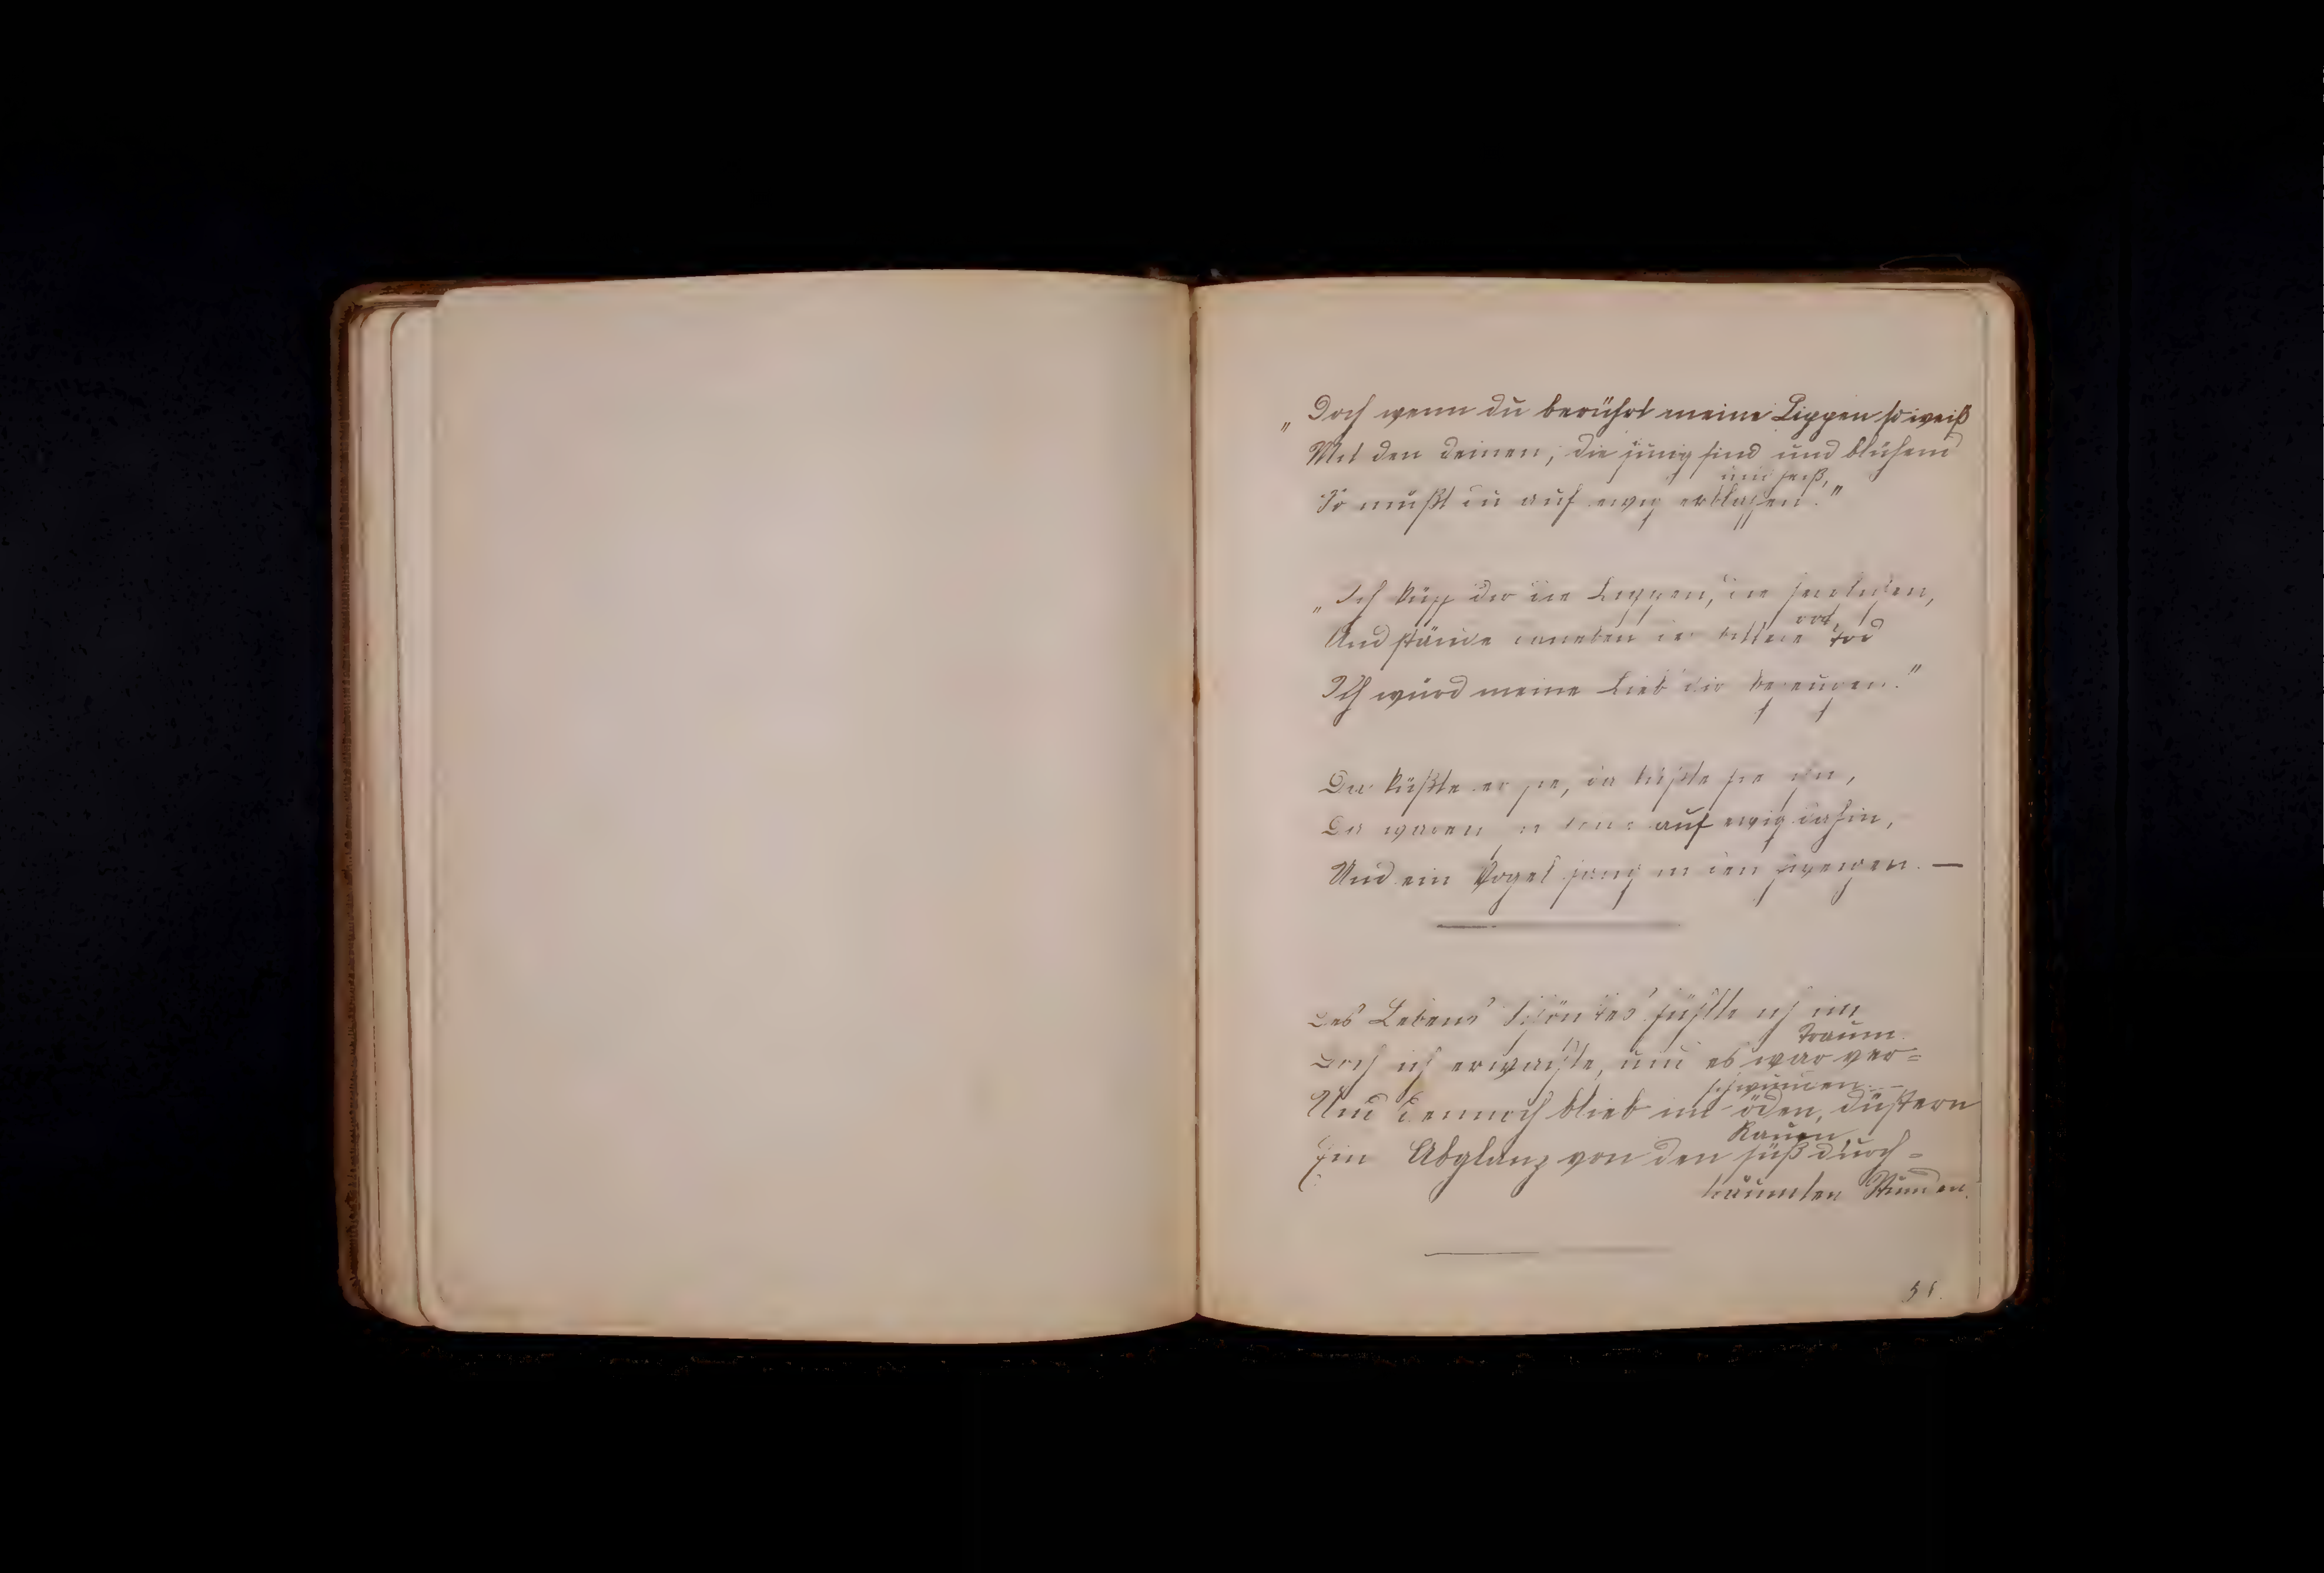 „Doch wenn du berührt meine Lippen so weiß
Mit den deinen, die jung sind und blühend
und heiß,
So mußt du auf ewig erblassen."
„Ich küss dir die Lippen, die
rot,
Und stände daneben der bittere Tod
Ich würd meine Lieb dir bezeugen."
Da küßte er sie, da küßte sie ihn,
Da waren sie beide auf ewig dahin,
Und ein Vogel sang in den Zweigen. —
Des Lebens Schönstes fühlte ich im
Traum
Doch ich erwachte, und es war ver=
schwunden. —
Und dennoch blieb im öden, düstern
Raum
Ein Abglanz von den süß durch=
träumten Stunden.
51.